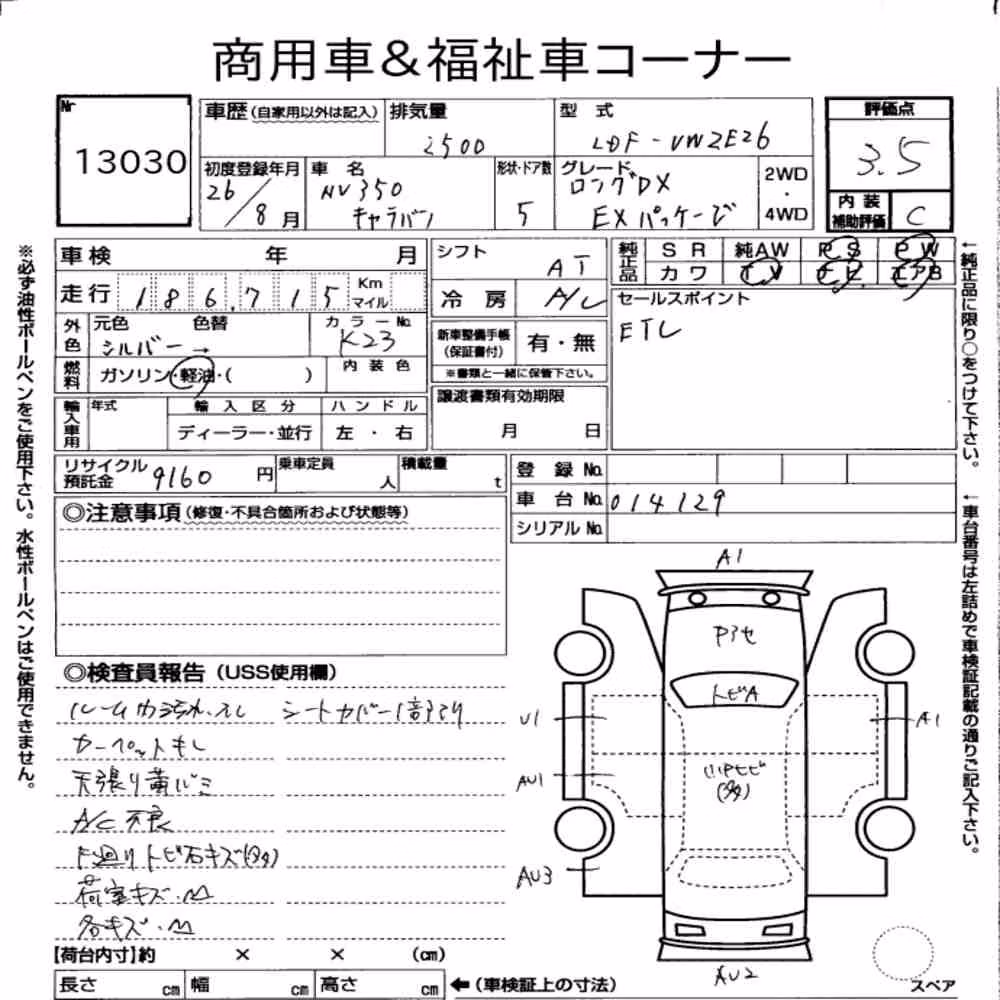 商用車&福祉車コーナー
Nr
13030
車歴(自家用以外は記入)
排気量
2500
型 式
LDF-VW2E26
評価点
3.5
内装補助評価 C
初度登録年月
26/8月
車 名
NV350
キャラバン
形状・ドア数
5
グレード
ロングDX
EXパッケージ
2WD
・
4WD
車検 年 月
走行 186,715 Km マイル
外色 元色 色替
シルバー→
カラーNo.
K23
燃料 ガソリン・軽油・( )
内装色
輸入車用 年式
輸入区分
ディーラー・並行
ハンドル
左・右
シフト
AT
冷房 A/C
新車整備手帳
(保証書付)
有・無
※書類と一緒に保管下さい。
譲渡書類有効期限
月 日
純正品 SR 純AW PS PW
カワ TV ナビ エアB
セールスポイント
ETC
リサイクル預託金 9160 円
乗車定員
人
積載量
t
登録No.
車台No. 014129
シリアルNo.
◎注意事項(修復・不具合箇所および状態等)
◎検査員報告(USS使用欄)
シートカバー1部
天張り黄バミ
A/C不良
下廻りトビ石キズ(多)
荷室キズ・凹
各キズ・凹
【荷台内寸】約 × × (cm)
長さ cm 幅 cm 高さ cm
←(車検証上の寸法)
A1
トビA
U1
A1
AU1
(多)
AU3
AU2
スペア
※必ず油性ボールペンをご使用下さい。水性ボールペンはご使用できません。
←純正品に限り○をつけて下さい。
←車台番号は左詰めで車検証記載の通りご記入下さい。